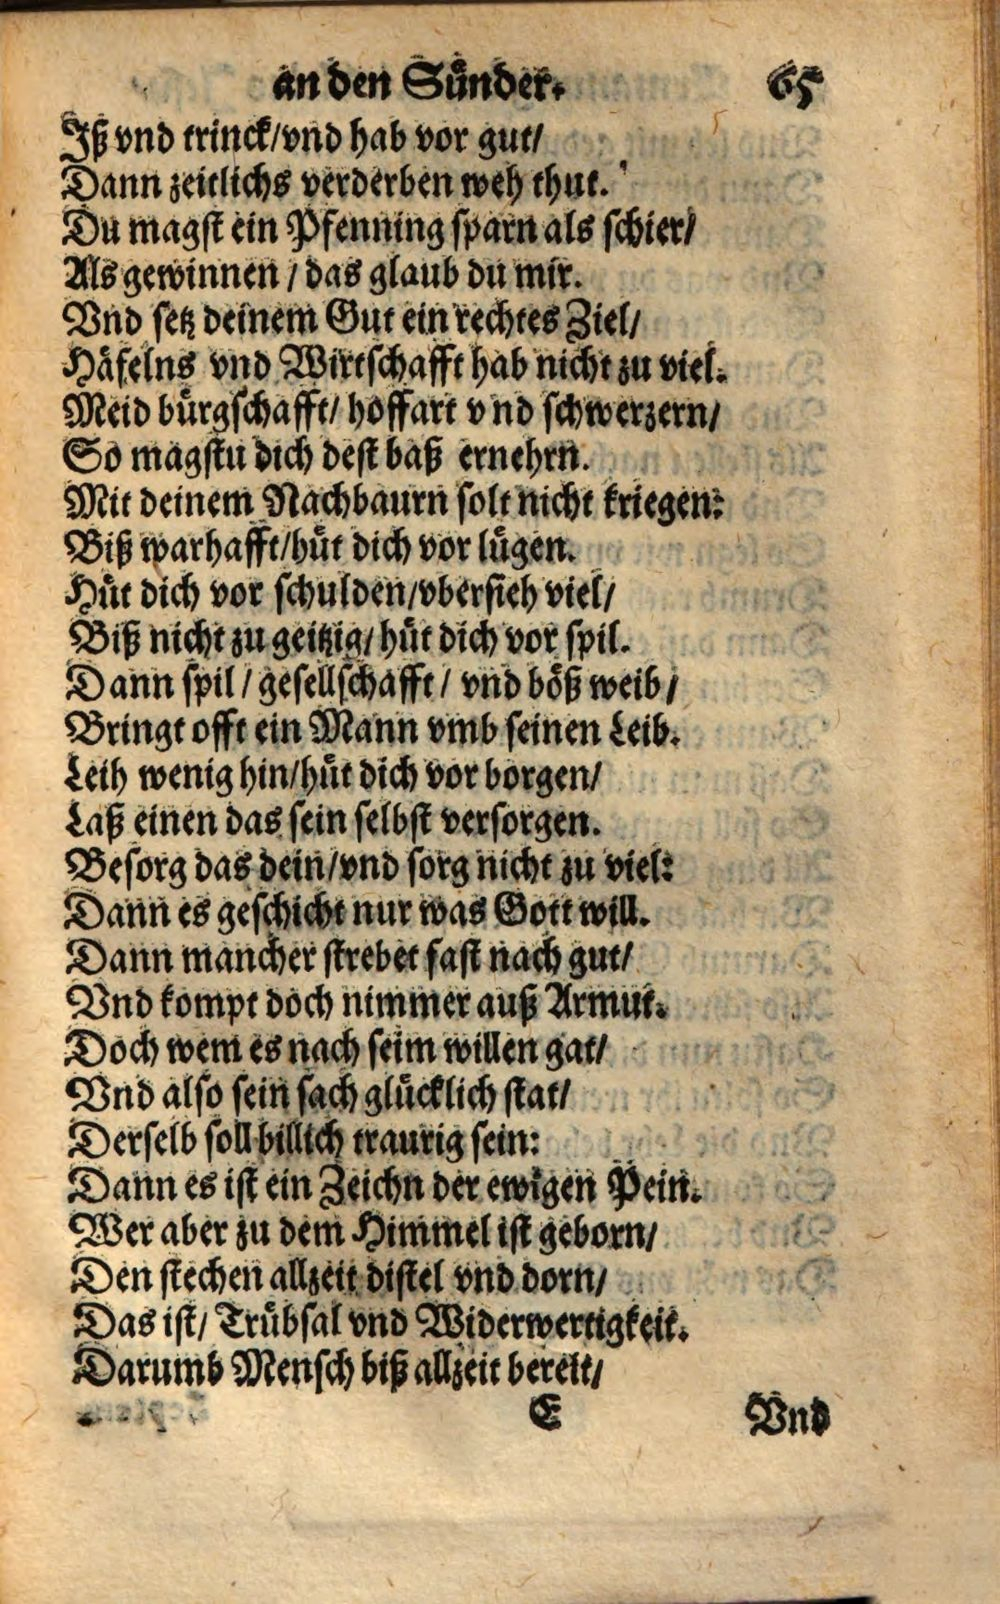 an den Sünder. 65
Iß vnd trinck/vnd hab vor gut/
Dann zeitlichs verderben weh thut.
Du magst ein Pfenning sparn als schier/
Als gewinnen / das glaub du mir.
Vnd setz deinem Gut ein rechtes Ziel/
Häfelns vnd Wirtschafft hab nicht zu viel.
Meid bürgschafft/ hoffart vnd schwerzern/
So magstu dich dest baß ernehrn.
Mit deinem Nachbaurn solt nicht kriegen:
Biß warhafft/hüt dich vor lügen.
Hüt dich vor schulden/vbersieh viel/
Biß nicht zu geitzig/ hüt dich vor spil.
Dann spil / gesellschafft / vnd böß weib/
Bringt offt ein Mann vmb seinen Leib.
Leih wenig hin/hüt dich vor borgen/
Laß einen das sein selbst versorgen.
Besorg das dein/vnd sorg nicht zu viel:
Dann es geschicht nur was Gott will.
Dann mancher strebet fast nach gut/
Vnd kompt doch nimmer auß Armut.
Doch wem es nach seim willen gat/
Vnd also sein sach glücklich stat/
Derselb soll billich traurig sein:
Dann es ist ein Zeichn der ewigen Pein.
Wer aber zu dem Himmel ist geborn/
Den stechen allzeit distel vnd dorn/
Das ist/ Trübsal vnd Widerwertigkeit.
Darumb Mensch biß allzeit bereit/
E Vnd